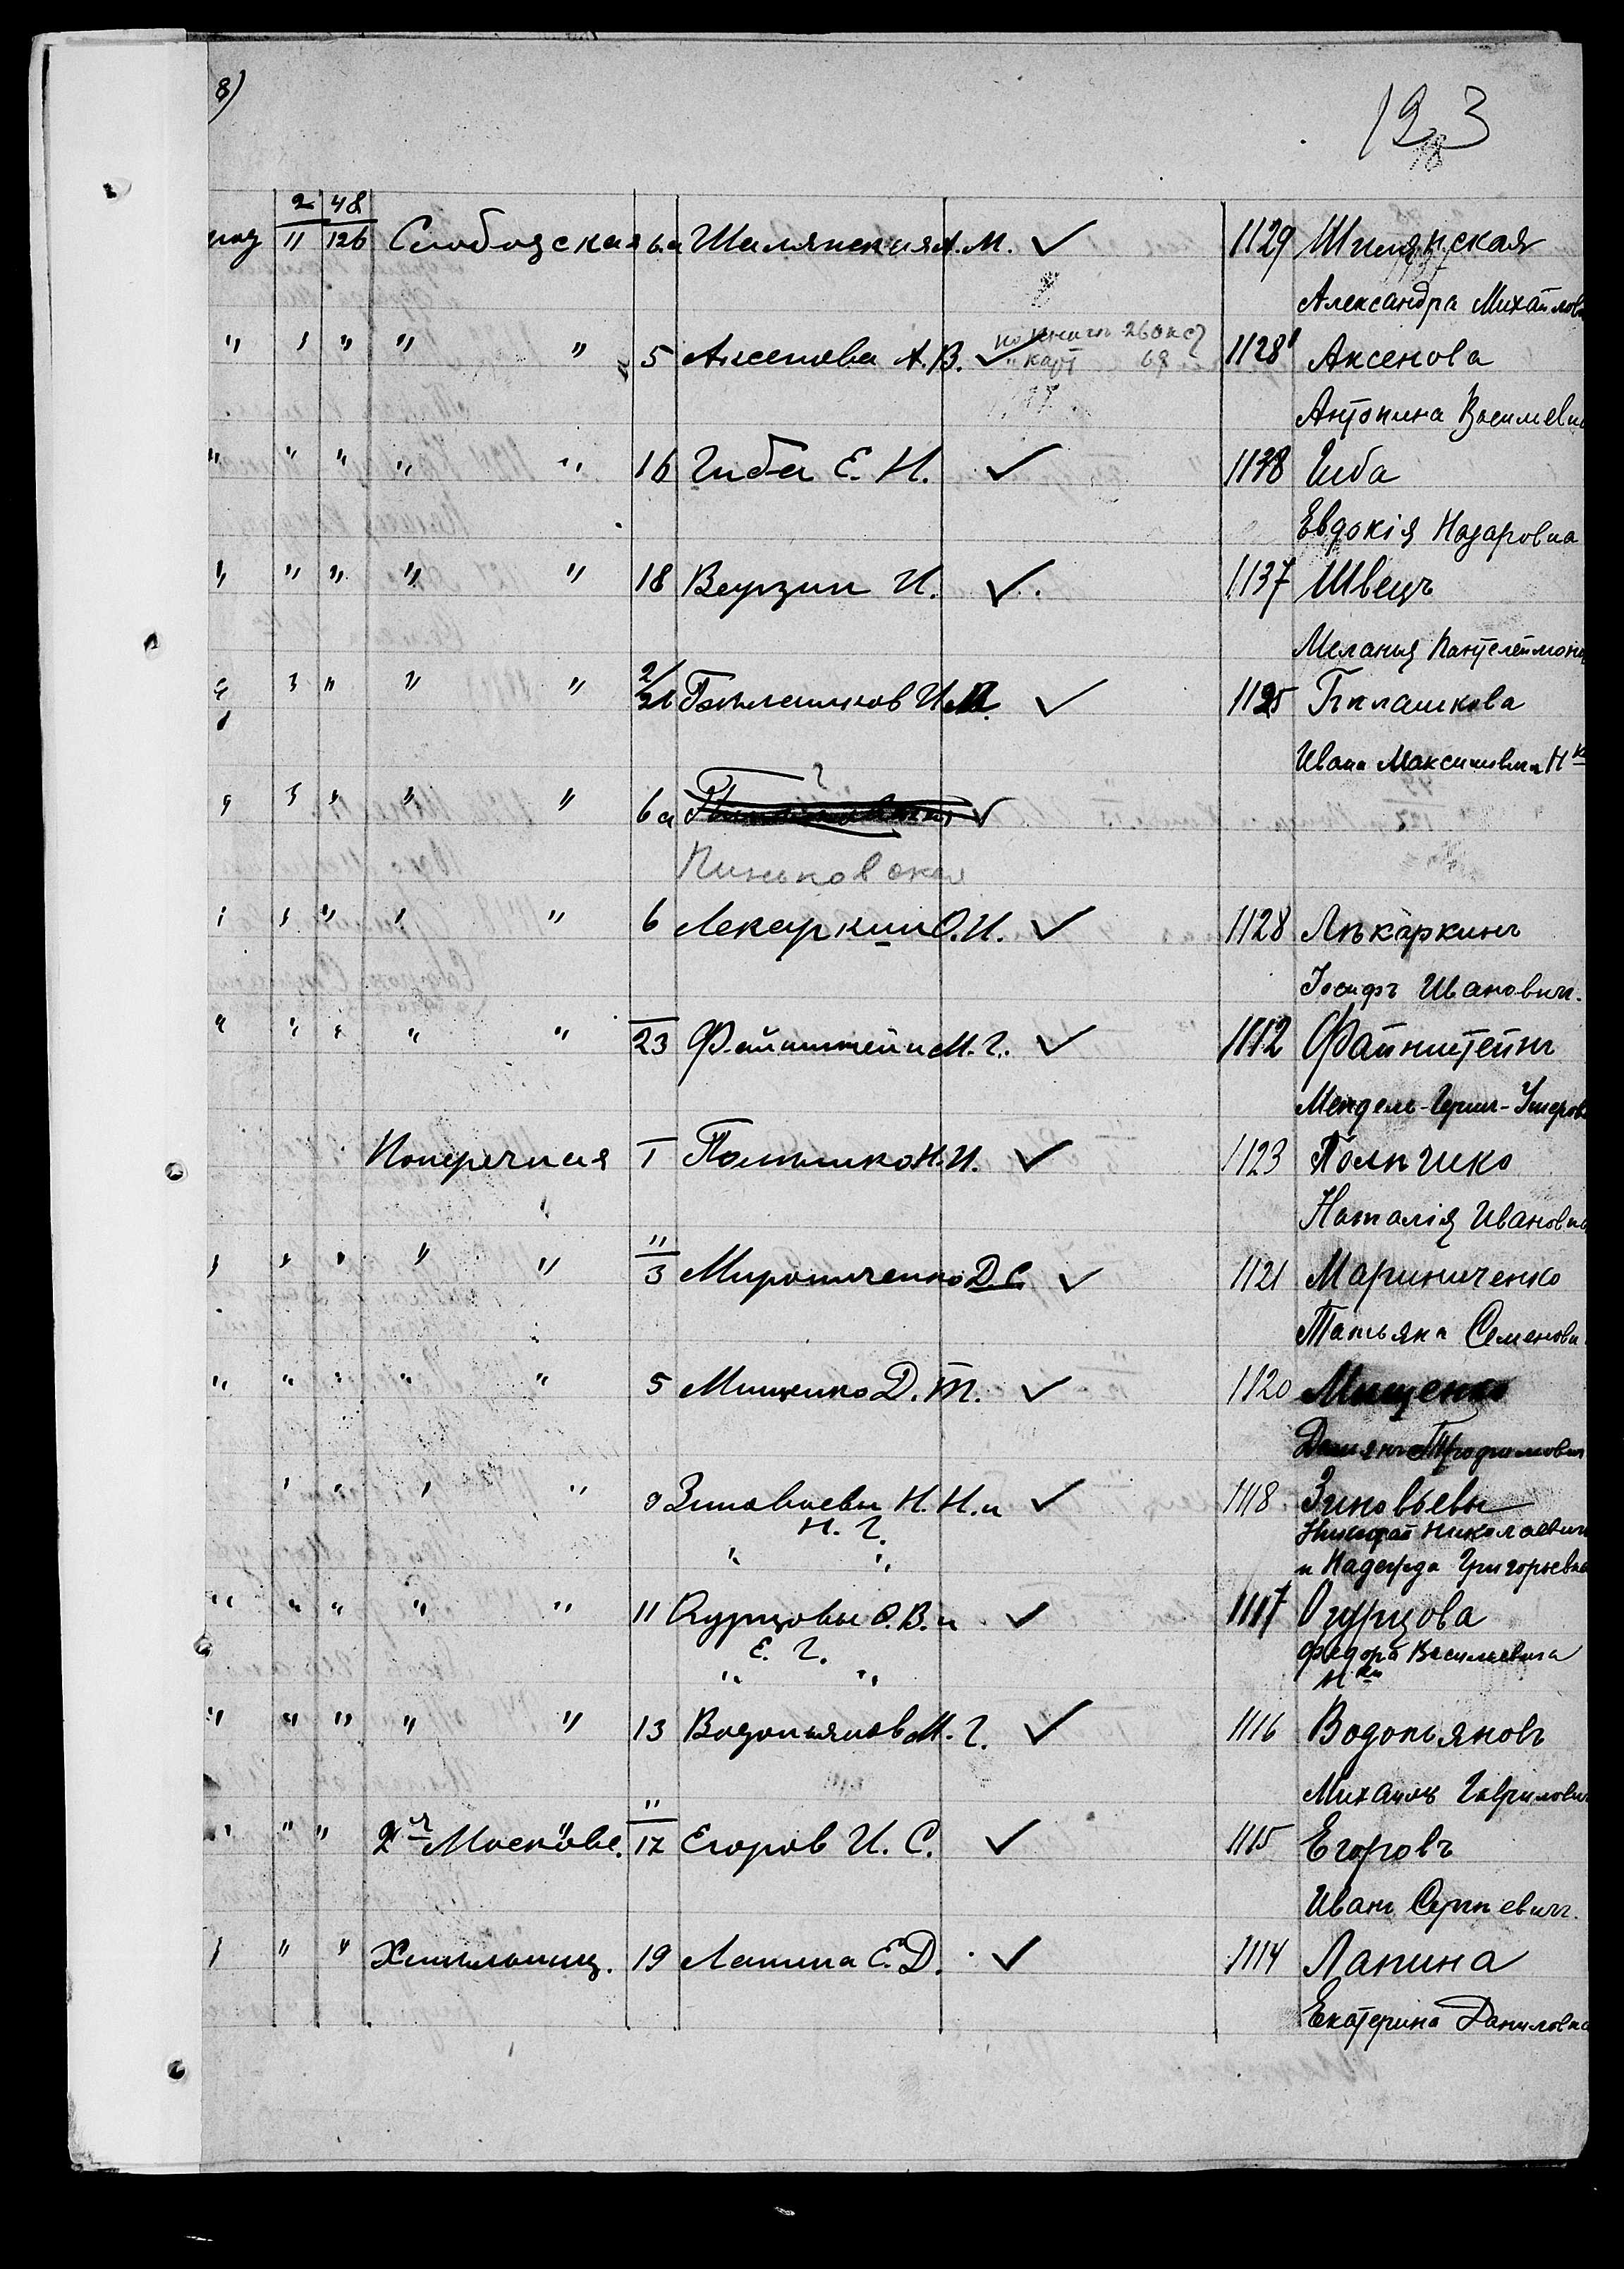 8)
123
2 48
11 126 Слободская 6а Шилянская А. М. ✓ 1129 Шилянская
Александра Михайлов
" " " " " 5 Аксенова А. В. ✓ 1128 Аксенова
Антонина Васильевн
" " " " " 16 Гиба Е. Н. ✓ 1138 Гиба
Евдокія Назаровна
" " " " " 18 И. ✓ 1137 Швецъ
Меланія Пантелеймон
" " " " " И. М. ✓ 1125 Билашкова
Ивана Максимовича Н-к
" " " " " 6а ✓
Пиньковская
" " " " " 6 Лекаркин О. И. ✓ 1128 Лѣкаркинъ
Іосифъ Иванович.
" " " " " 23 Файнштейн М. Г. ✓ 1112 Файнштейнъ
Мендель-Герш-Ушеров
Поперечная 1 Н. И. ✓ 1123
Наталія Ивановн
" " " " " 11/3 Мирониченко Д. С. ✓ 1121 Мариниченко
Татьяна Семеновн
" " " " " 5 Мищенко Д. Т. ✓ 1120 Мищенко
Демьянъ Трофимович
" " " 9 Зиновьевы Н. Н. и ✓ 1118 Зиновьевы
Н. Г. Николай Николаевич
" " и Надежда Григорьевна
" " " " " 11 Огурцовы Ф. В. и ✓ 1117 Огурцова
Е. Г. Федора Васильевича
" " Н-ки
" " " " " 13 Водопьянов М. Г. ✓ 1116 Водопьяновъ
Михаилъ Гаврилович
" " " 2я Московс. 11/17 Егоров И. С. ✓ 1115 Егоровъ
Иванъ Сергѣевич.
" " " 19 Лапина Е. Д. ✓ 1114 Лапина
Екатерина Даниловна